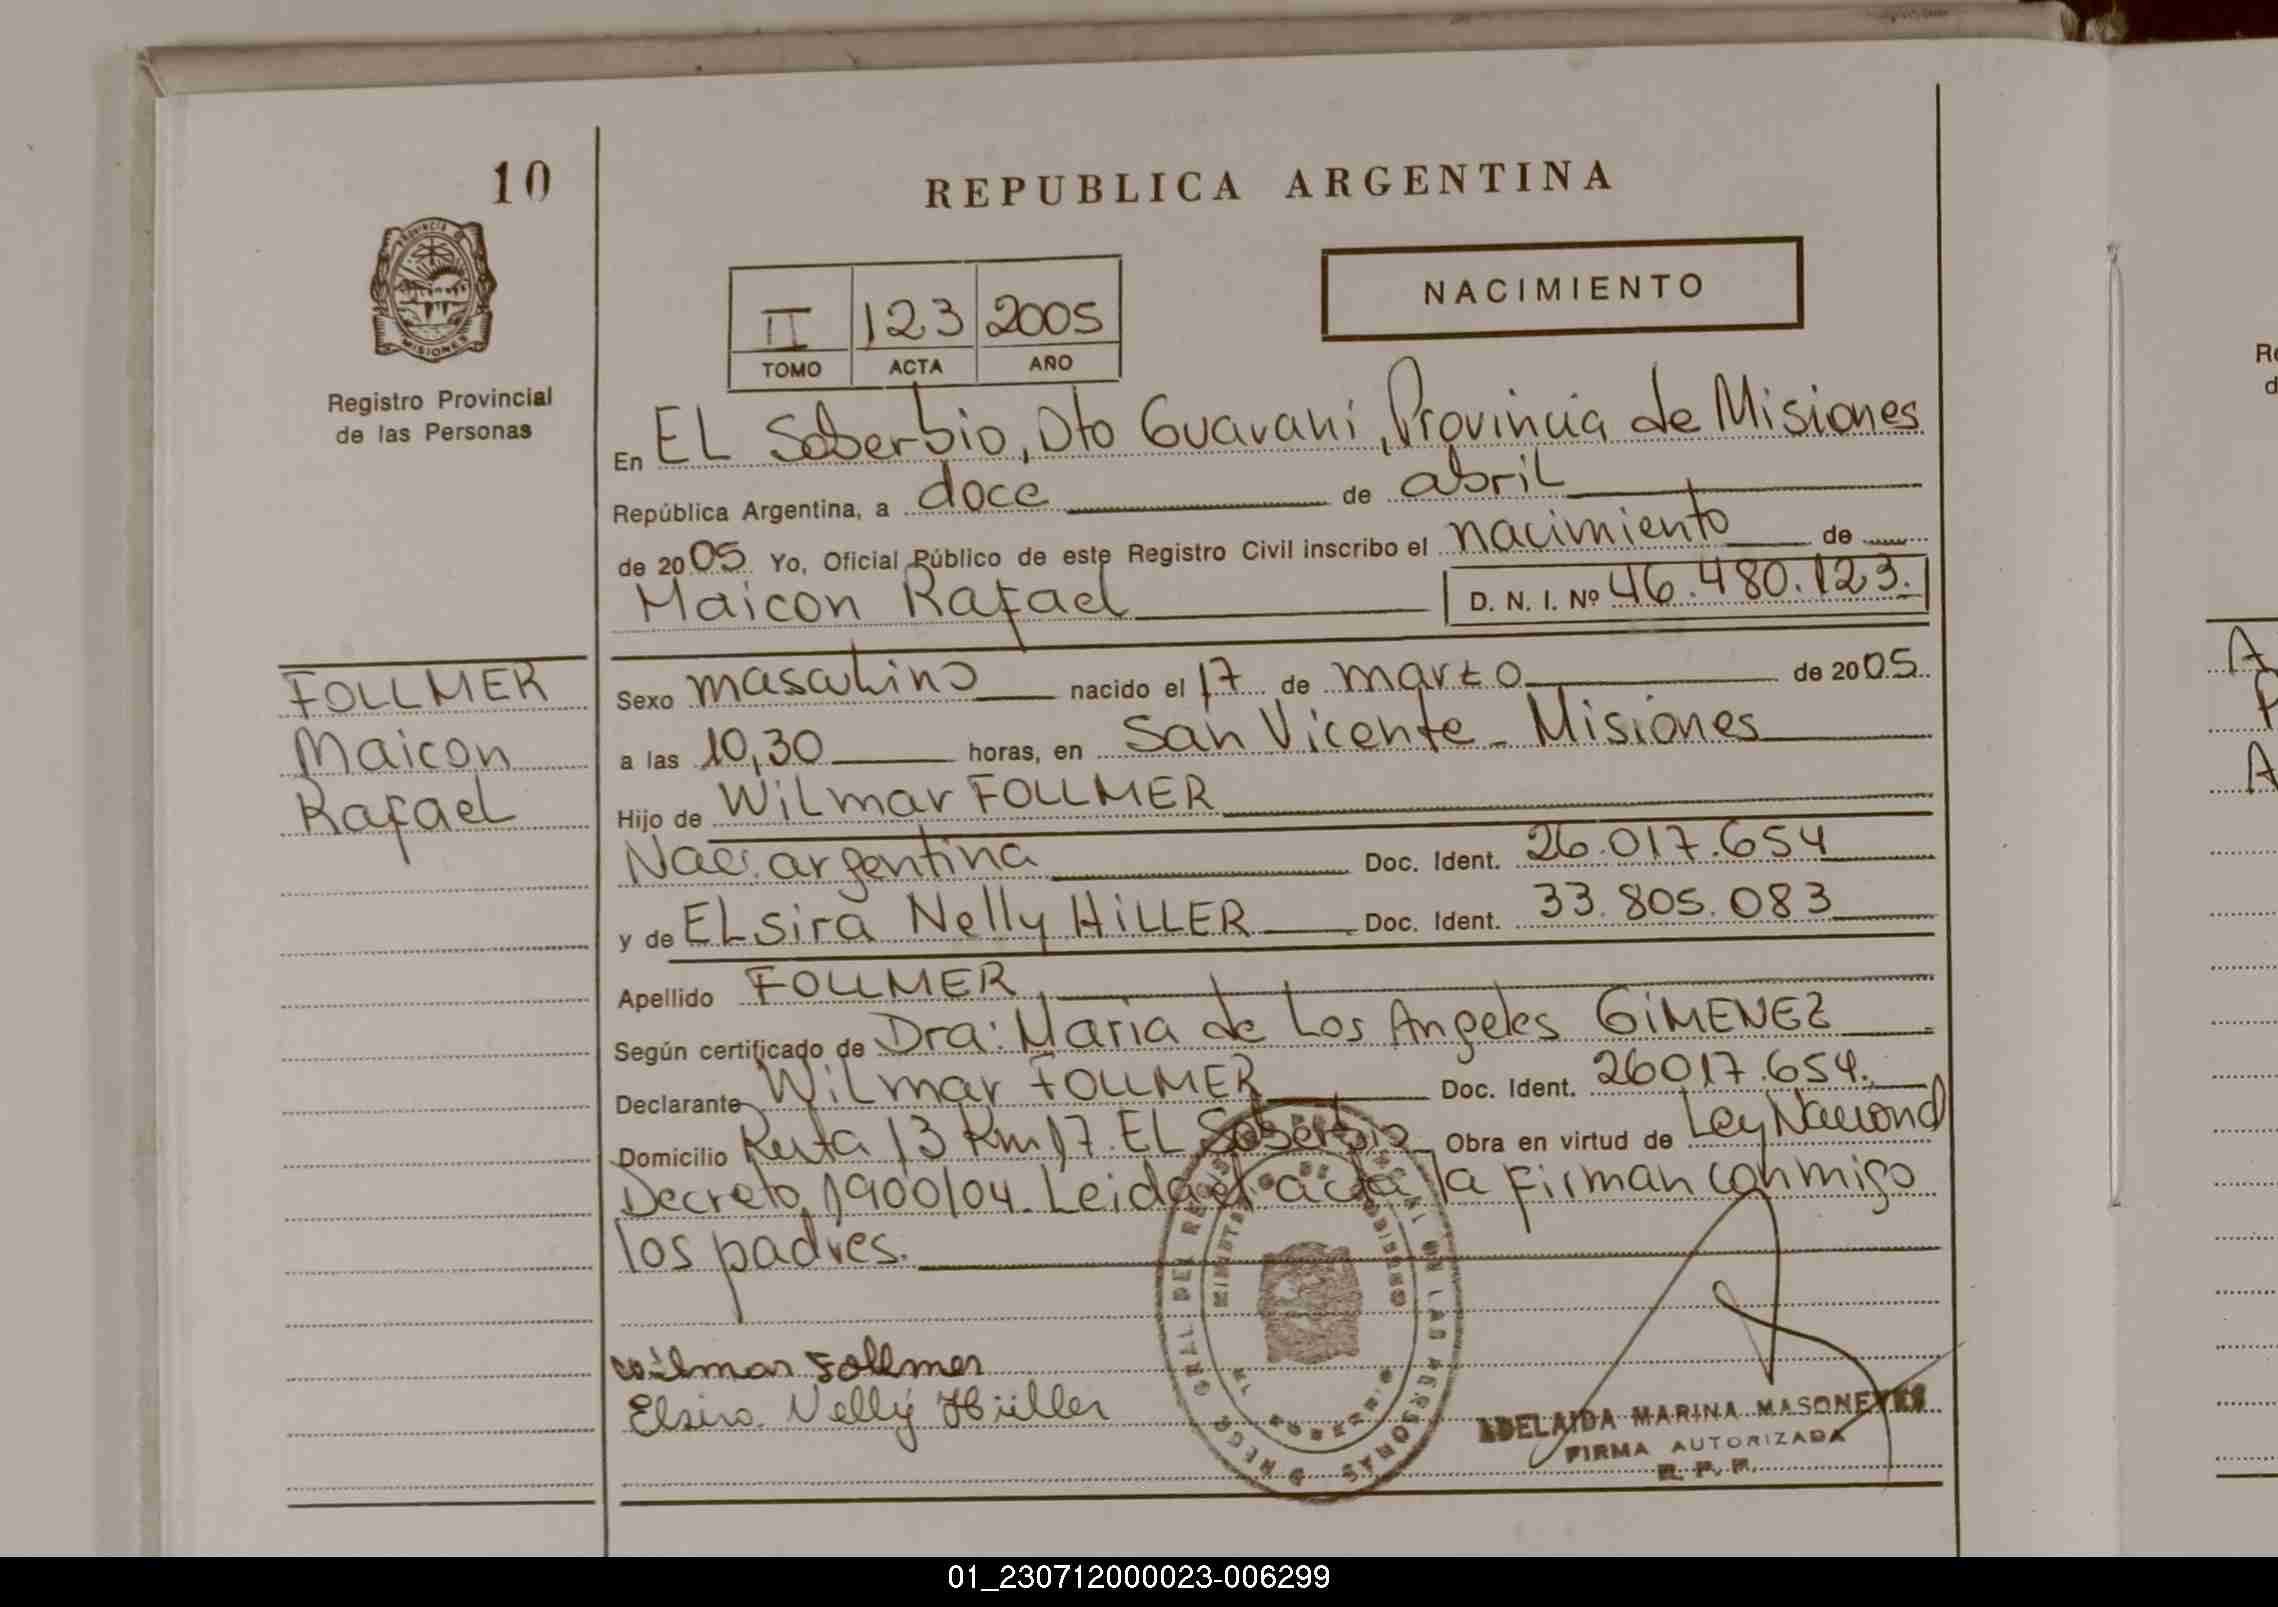 10
REPUBLICA ARGENTINA
PROVINCIA DE
MISIONES
Registro Provincial
de las Personas
NACIMIENTO
II 123 2005
TOMO ACTA AÑO
En EL Soberbio, Dto Guarani, Provincia de Misiones
República Argentina, a doce de abril
de 2005 Yo, Oficial Público de este Registro Civil inscribo el nacimiento de
Maicon Rafael D. N. I. Nº 46.480.123.
FOLLMER
Maicon
Rafael
Sexo masculino nacido el 17 de marzo de 2005
a las 10,30 horas, en San Vicente - Misiones
Hijo de Wilmar FOLLMER
Nac. argentina Doc. Ident. 26.017.654
y de ELsira Nelly HiLLER Doc. Ident. 33.805.083
Apellido FOLLMER
Según certificado de Dra: Maria de Los Angeles GiMENEZ
Declarante Wilmar FOLLMER Doc. Ident. 26017.654.
Domicilio Ruta 13 Km 17. EL Soberbio Obra en virtud de Ley Nacional
Decreto 1900/04. Leida el acta la firman conmigo
los padres.
Wilmar Follmer
Elsira Nelly Hüller
ADELAIDA MARINA
FIRMA AUTORIZADA
R. P. P.
A
R
A
01_230712000023-006299